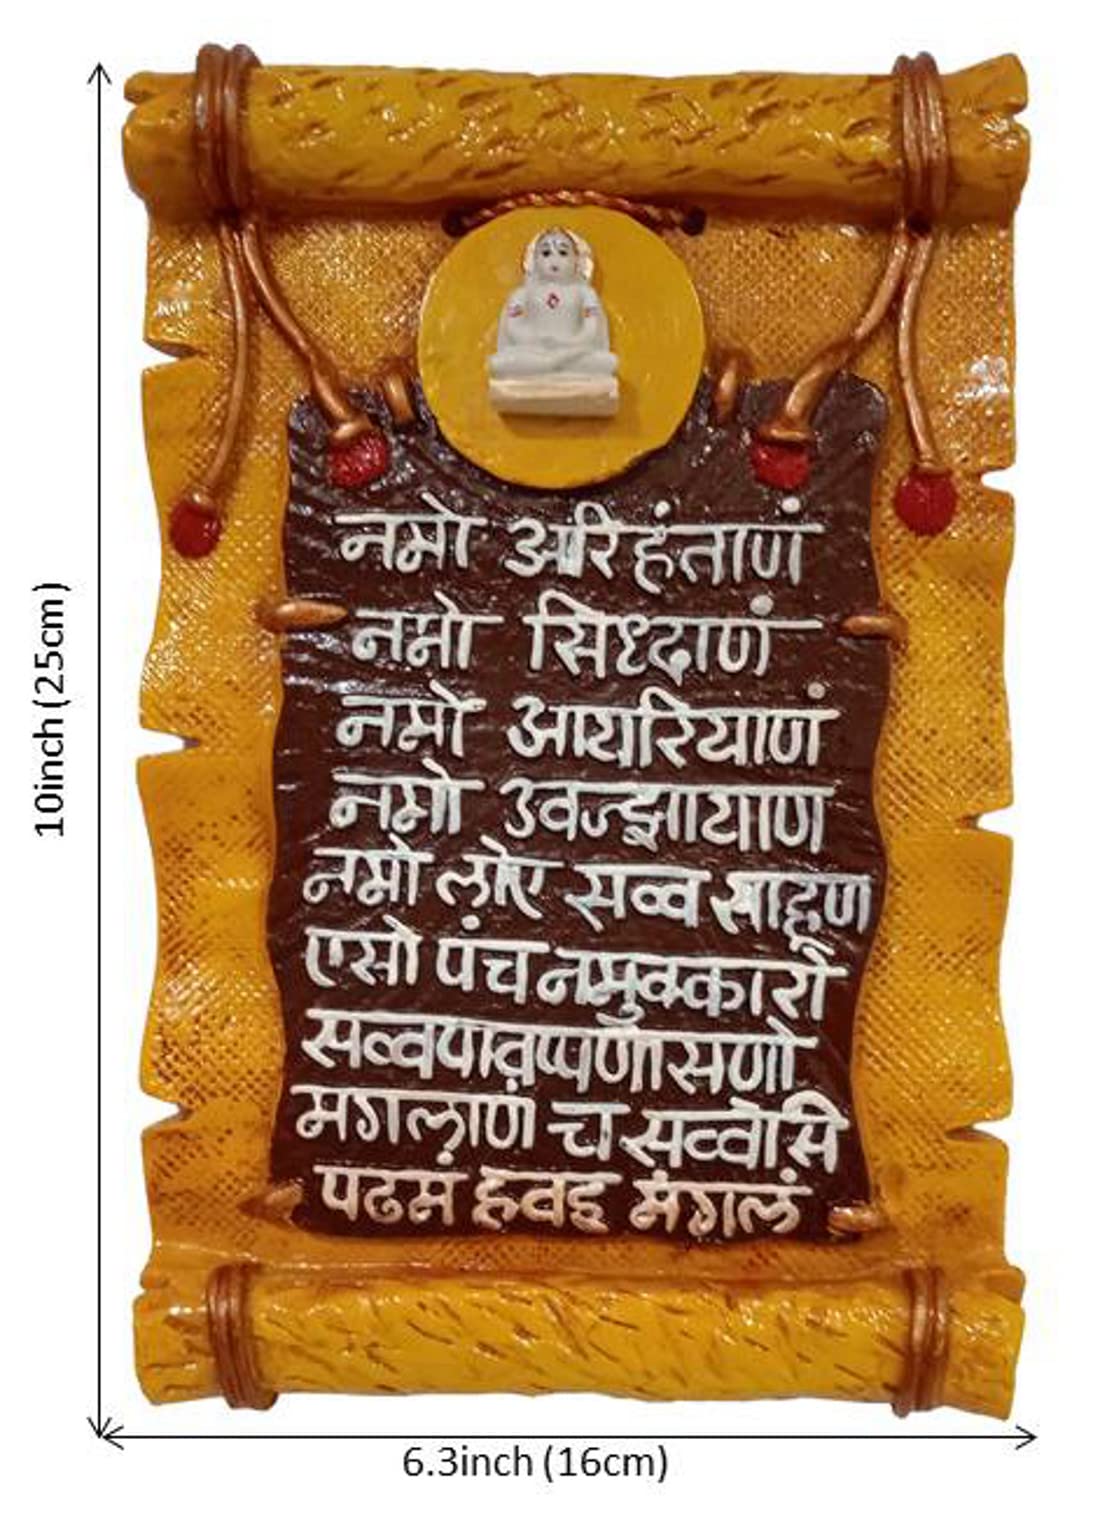 नमो अरिहंताणं
नमो सिध्दाणं
नमो आयरियाणं
नमो उवज्झायाण
नमो लोए सव्व साहूण
एसो पंच नमुक्कारो
सव्वपावप्पणासणो
मगलाणं च सव्वेसि
पढमं हवइ मंगलं
10inch (25cm)
6.3inch (16cm)